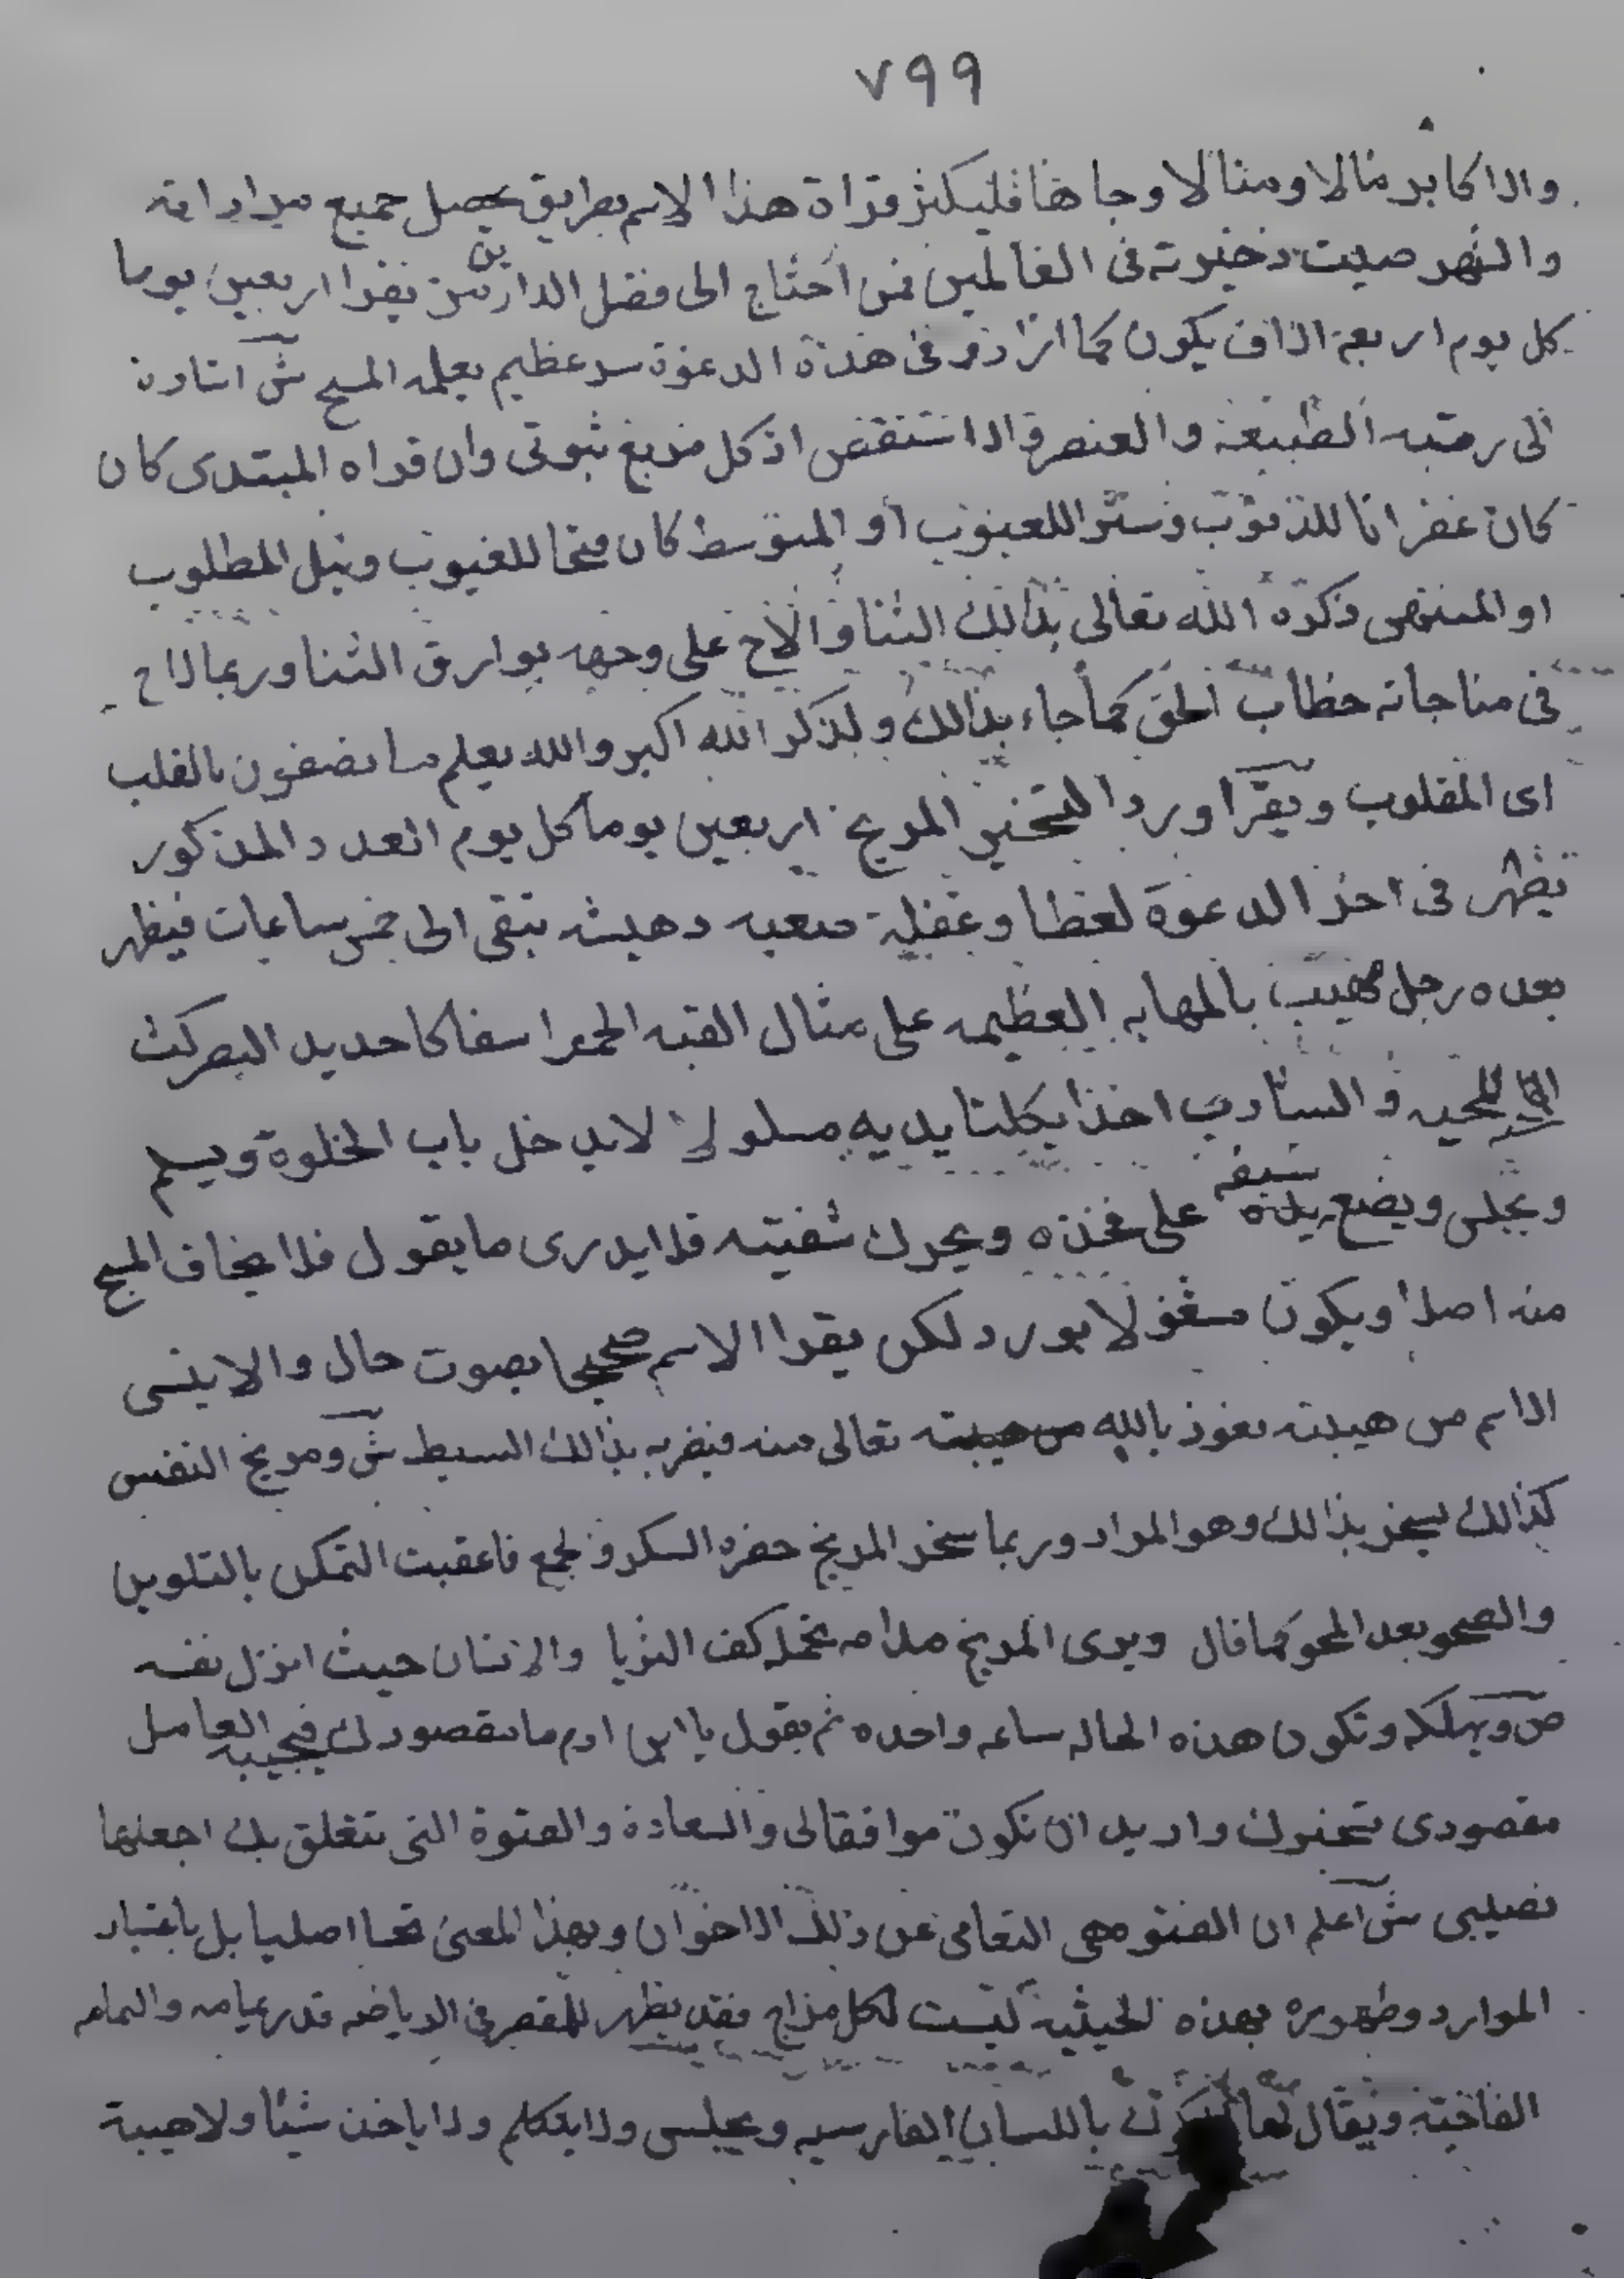 ٧٩٩
والاكابر منالا ومنالا وجاها فليكثر قراة هذا الاسم بطريق يحصل جميع مراداته
والشهر صيت ذخيرته فى العالمين فمن احتاج الى فضل الدارين يقرا اربعين يوما
كل يوم اربعة الاف يكون كما اراد وفى هذه الدعوة سر عظيم يعلمه المسبح ش اشارة
الى رتبه الطبيعة والعنصر والا استقص اذ كل مربع ثبوتى وان قراه المبتدى كان
كان غفرانا للذنوب وسترا للعيوب او المتوسط كان فتحا للغيوب ونيل المطلوب
او المنتهى ذكره الله تعالى بذالك الثنا والاح على وجهه بوارق الثنا وربما لاح
فى مناجاته خطاب الحق كما جاء بذالك ولذكر الله اكبر والله يعلم ما تصنعون بالقلب
اى المقلوب ويقرا ورد التسخير المريخ اربعين يوما كل يوم العدد المذكور
تظهر فى اخر الدعوة لغطا وغفلة صعبه دهيشه تبقى الى خمس ساعات فيظهر
بعده رجل مهيب بالمهابه العظيمه على مثال القبه الحمرا سفاكا حديد البصر كث
اللحيه والشارب اخذا بكلتا يديه مسلولا لا يدخل باب الخلوة ويسلم
ويجلس ويضع يده سيفه على فخذه ويحرك شفتيه فلا يدرى ما يقول فلا يخاف المسبح
منه اصلا ويكون مشغولا بورد لكن يقرا الاسم صحيحا بصوت حال والا ينسى
الاسم من هيبته نعوذ بالله من هيبته تعالى منه فيضربه بذالك السيط ش ومريخ النفس
كذالك يسخر بذالك وهو المراد وربما سخر المريخ حضره السكر والجمع فاعقبت التمكن بالتلوين
والصحو بعد المحو كما قال ويرى المريخ مدامه تحمله كف الثريا والانسان حيث انزل نفسه
ص ويهلكه وتكون هذه الحاله ساعه واحده ثم يقول يا ابن ادم ما مقصودك فيجيبه العامل
مقصودى تسخيرك واريد ان تكون موافقا لى والسعادة والفتوة التى تتعلق بك اجعلها
نصيبى ش اعلم ان الفتوه هى التعامى عن زلل الاخوان وبهذا المعنى اصليا بل باعتبار
الموارد وظهوره بهذه الحيثيه ليست لكل مزاج فقد يظهر للمقصر فى الرياضه قدر عمامه واليمامه
الفاخته ويقال لها باللسان الفارسيه ويجلس ولا يتكلم ولا ياخذ شيئا ولا هيبة